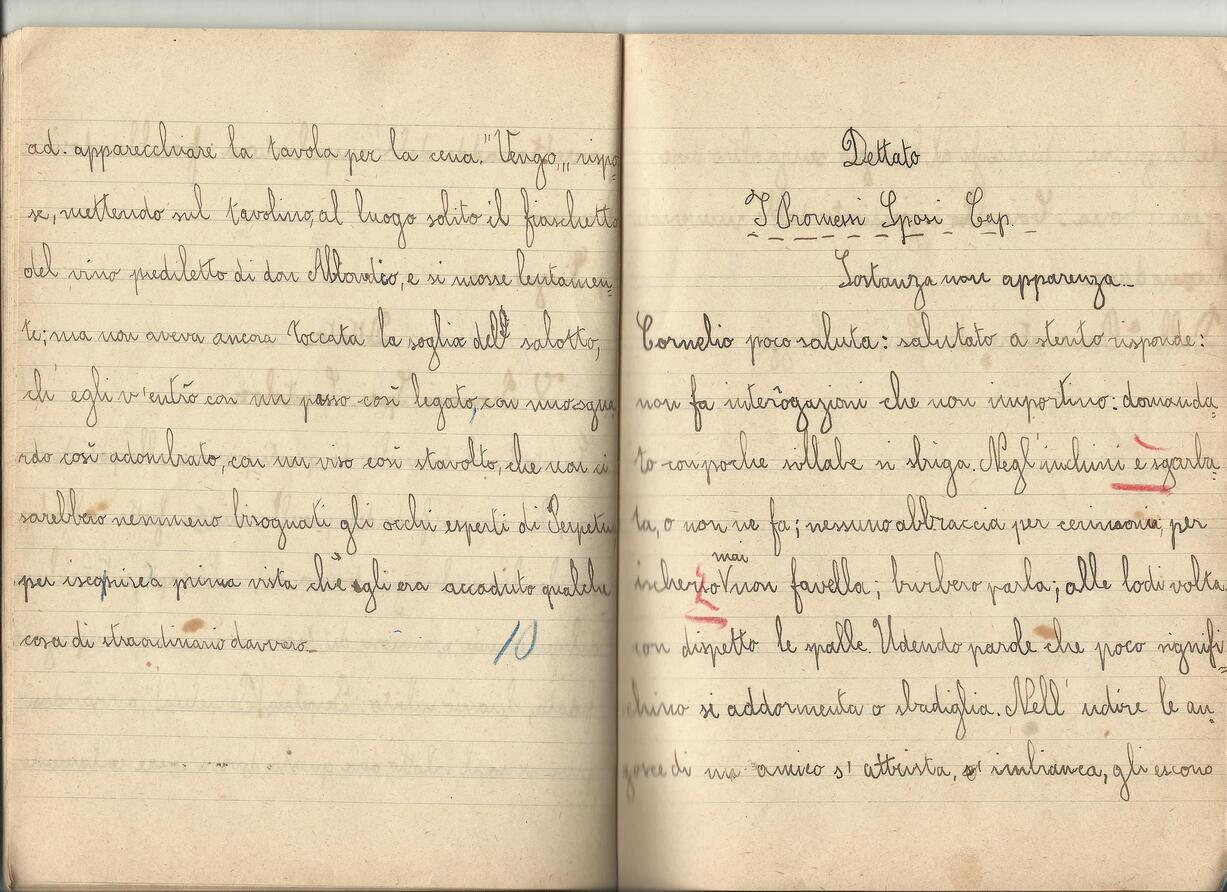 ad. apparecchiare la tavola per la cena. "Vengo,,, rispo=
se, mettendo sul tavolino, al luogo solito il fiaschetto
del vino prediletto di don Abbondio, e si mosse lentamen=
te; ma non aveva ancora toccata la soglia del salotto,
ch' egli v'entrò con un passo così legato, con uno sgua
rdo così adombrato, con un viso così stavolto, che non ci
sarebbero nemmeno bisognati gli occhi esperti di Perpetua
per iscoprire a prima vista che egli era accaduto qualche
cosa di straordinario davvero.
10
Dettato
I Promessi Sposi Cap.
Sostanza non apparenza.
Cornelio poco saluta: salutato a stento risponde:
non fa interògazioni che non importino: domanda=
to con poche sillabe si sbriga. Negl'inchini è sgarba=
ta, o non ne fa; nessuno abbraccia per cerimonia; per
ischerzo mai non favella; burbero parla; alle lodi volta
con dispetto le spalle. Udendo parole che poco signifi=
chino si addormenta o sbadiglia. Nell' udire le an=
gosce di un amico s' attrista, s' imbianca, gli escono